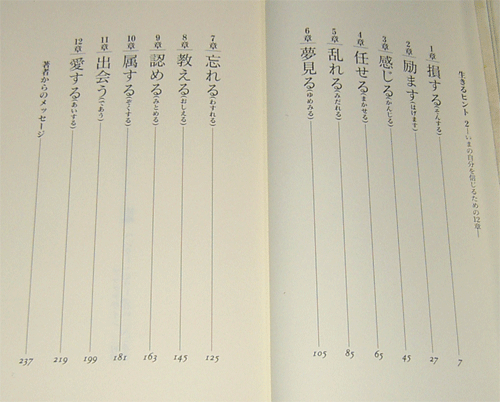 生きるヒント 2 —いまの自分を信じるための12章—
1章 損する(そんする) 7
2章 励ます(はげます) 27
3章 感じる(かんじる) 45
4章 任せる(まかせる) 65
5章 乱れる(みだれる) 85
6章 夢見る(ゆめみる) 105
7章 忘れる(わすれる) 125
8章 教える(おしえる) 145
9章 認める(みとめる) 163
10章 属する(ぞくする) 181
11章 出会う(であう) 199
12章 愛する(あいする) 219
著者からのメッセージ 237